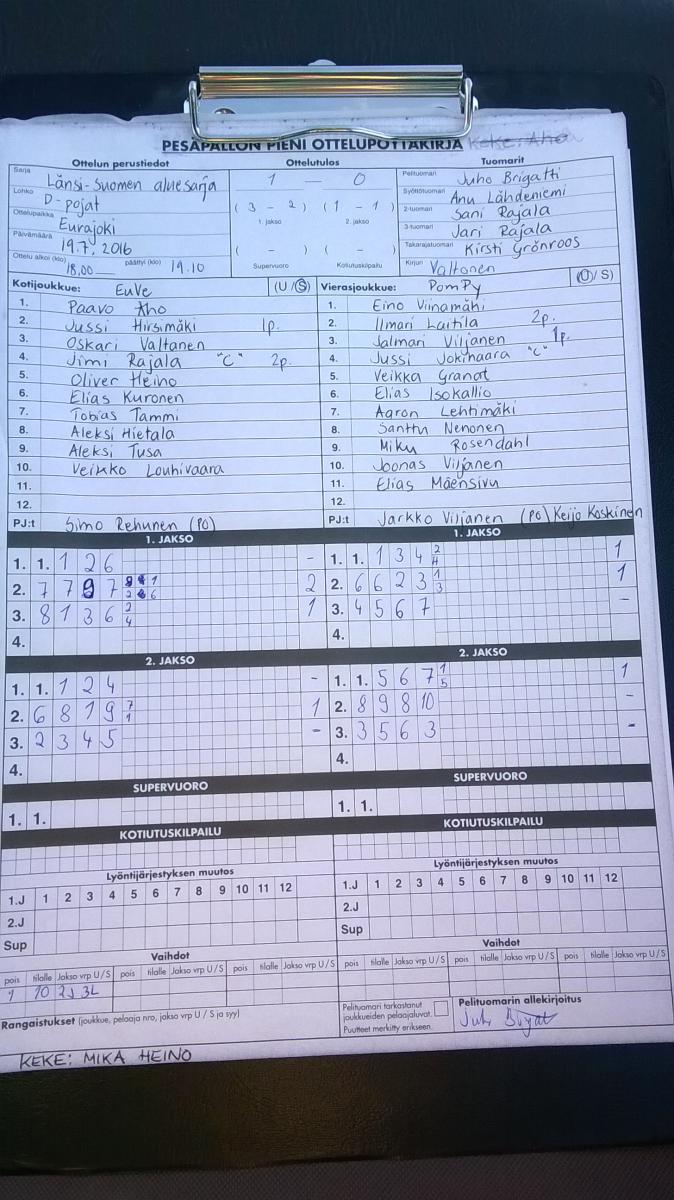 PESÄPALLON PIENI OTTELUPÖYTÄKIRJA Keke: Aho
Ottelun perustiedot Ottelutulos Tuomarit
Sarja Länsi-Suomen aluesarja 1 — 0 Pelituomari Juho Brigatti
Lohko D-pojat ( 3 - 2 ) ( 1 - 1 ) Syöttötuomari Anu Lähdeniemi
Ottelupaikka Eurajoki 1. jakso 2. jakso 2-tuomari Sani Rajala
Päivämäärä 19.7.2016 3-tuomari Jari Rajala
( - ) ( - ) Takarajatuomari Kirsti Grönroos
Ottelu alkoi (klo) 18.00 päättyi (klo) 19.10 Supervuoro Kotiutuskilpailu Kirjuri Valtonen
Kotijoukkue: EuVe (U/S) Vierasjoukkue: PomPy (U/S)
1. Paavo Aho 1. Eino Viinamäki
2. Jussi Hirsimäki 1p. 2. Ilmari Laitila 2p.
3. Oskari Valtanen 3. Jalmari Viljanen 1p.
4. Jimi Rajala "C" 2p. 4. Jussi Jokihaara "C"
5. Oliver Heino 5. Veikka Granat
6. Elias Kuronen 6. Elias Isokallio
7. Tobias Tammi 7. Aaron Lehtimäki
8. Aleksi Hietala 8. Santtu Nenonen
9. Aleksi Tusa 9. Miku Rosendahl
10. Veikko Louhivaara 10. Joonas Viljanen
11. 11. Elias Mäensivu
12. 12.
PJ:t Simo Rehunen (PO) PJ:t Jarkko Viljanen (PO) Keijo Koskinen
1. JAKSO 1. JAKSO
1. 1. 1 2 6 - 1. 1. 1 3 4 2 4 1
2. 7 7 9 7 2 2. 6 6 2 3 1 3 1
3. 8 1 3 6 2 4 1 3. 4 5 6 7 -
4. 4.
2. JAKSO 2. JAKSO
1. 1. 1 2 4 - 1. 1. 5 6 7 1 5 1
2. 6 8 1 9 7 1 1 2. 8 9 8 10 -
3. 2 3 4 5 - 3. 3 5 6 3 -
4. 4.
SUPERVUORO SUPERVUORO
1. 1. 1. 1.
KOTIUTUSKILPAILU KOTIUTUSKILPAILU
Lyöntijärjestyksen muutos Lyöntijärjestyksen muutos
1.J 1 2 3 4 5 6 7 8 9 10 11 12 1.J 1 2 3 4 5 6 7 8 9 10 11 12
2.J 2.J
Sup Sup
Vaihdot Vaihdot
pois tilalle Jakso vrp U/S pois tilalle Jakso vrp U/S pois tilalle Jakso vrp U/S pois tilalle Jakso vrp U/S pois tilalle Jakso vrp U/S pois tilalle Jakso vrp U/S
1 10 2J 3L
Rangaistukset (joukkue, pelaaja nro, jakso vrp U / S ja syy) Pelituomari tarkastanut joukkueiden pelaajaluvat. Puutteet merkitty erikseen. Pelituomarin allekirjoitus
KEKE: MIKA HEINO